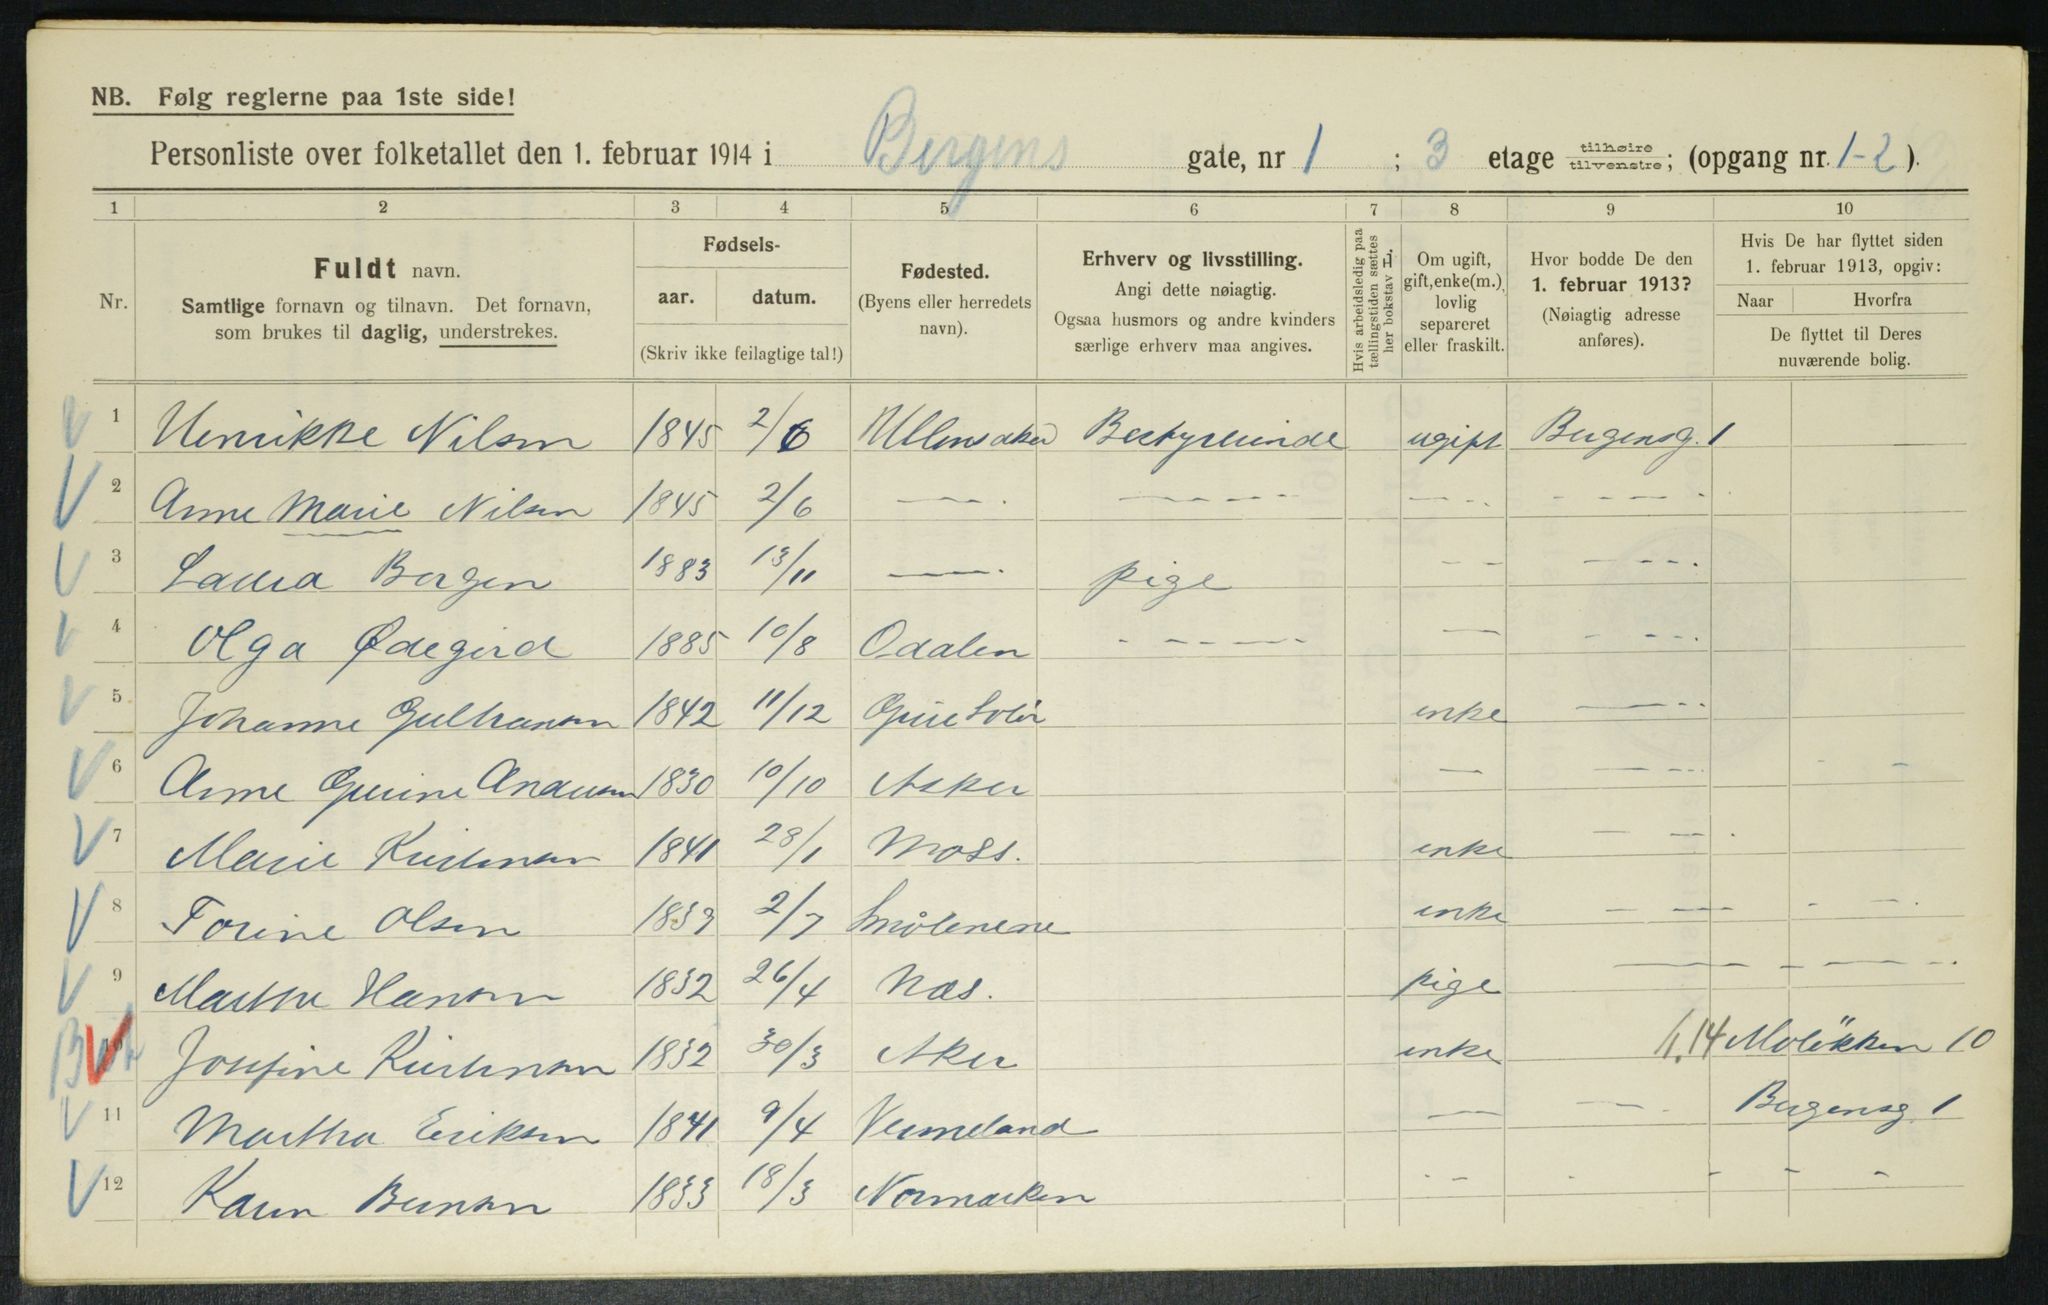 NB. Følg reglerne paa 1ste side!
Personliste over folketallet den 1. februar 1914 i Bergens gate, nr 1 ; 3 etage tilhøire tilvenstre; (opgang nr. 1-2).
1 2 3 4 5 6 7 8 9 10
Nr.
Fuldt navn.
Samtlige fornavn og tilnavn. Det fornavn,
som brukes til daglig, understrekes.
Fødsels-
aar. datum.
(Skriv ikke feilagtige tal!)
Fødested.
(Byens eller herredets
navn).
Erhverv og livsstilling.
Angi dette nøiagtig.
Ogsaa husmors og andre kvinders
særlige erhverv maa angives.
Hvis arbeidsledig paa
tællingstiden sættes
her bokstav L.
Om ugift,
gift, enke(m.),
lovlig
separeret
eller fraskilt.
Hvor bodde De den
1. februar 1913?
(Nøiagtig adresse
anføres).
Hvis De har flyttet siden
1. februar 1913, opgiv:
Naar Hvorfra
De flyttet til Deres
nuværende bolig.
1 Henrikke Nilsen 1845 2/6 Ullensaker Bestyrerinde ugift Bergensg. 1
2 Anne Marie Nilsen 1845 2/6 — - - - - - - - - - - -
3 Laura Borgen 1883 13/11 — pige - - - - - -
4 Olga Ødegård 1885 10/8 Odalen - - - - - — - - -
5 Johanne Gulbransen 1842 11/12 Grue Solør enke - - - -
6 Anne Gurine Andersen 1830 10/10 Asker — - - - - -
7 Marie Kristensen 1841 28/1 Moss. enke - - -
8 Torine Olsen 1839 2/7 Smålenene enke - - - - -
9 Martha Hansen 1832 26/4 Næs. pige - - - - - - -
10 Josefine Kristensen 1832 30/3 Aker enke 14 Møløkken 10
11 Martha Eriksen 1841 9/4 Vermeland — - - Bergensg 1
12 Karen Bensen 1833 18/3 Normarken - - - - - -